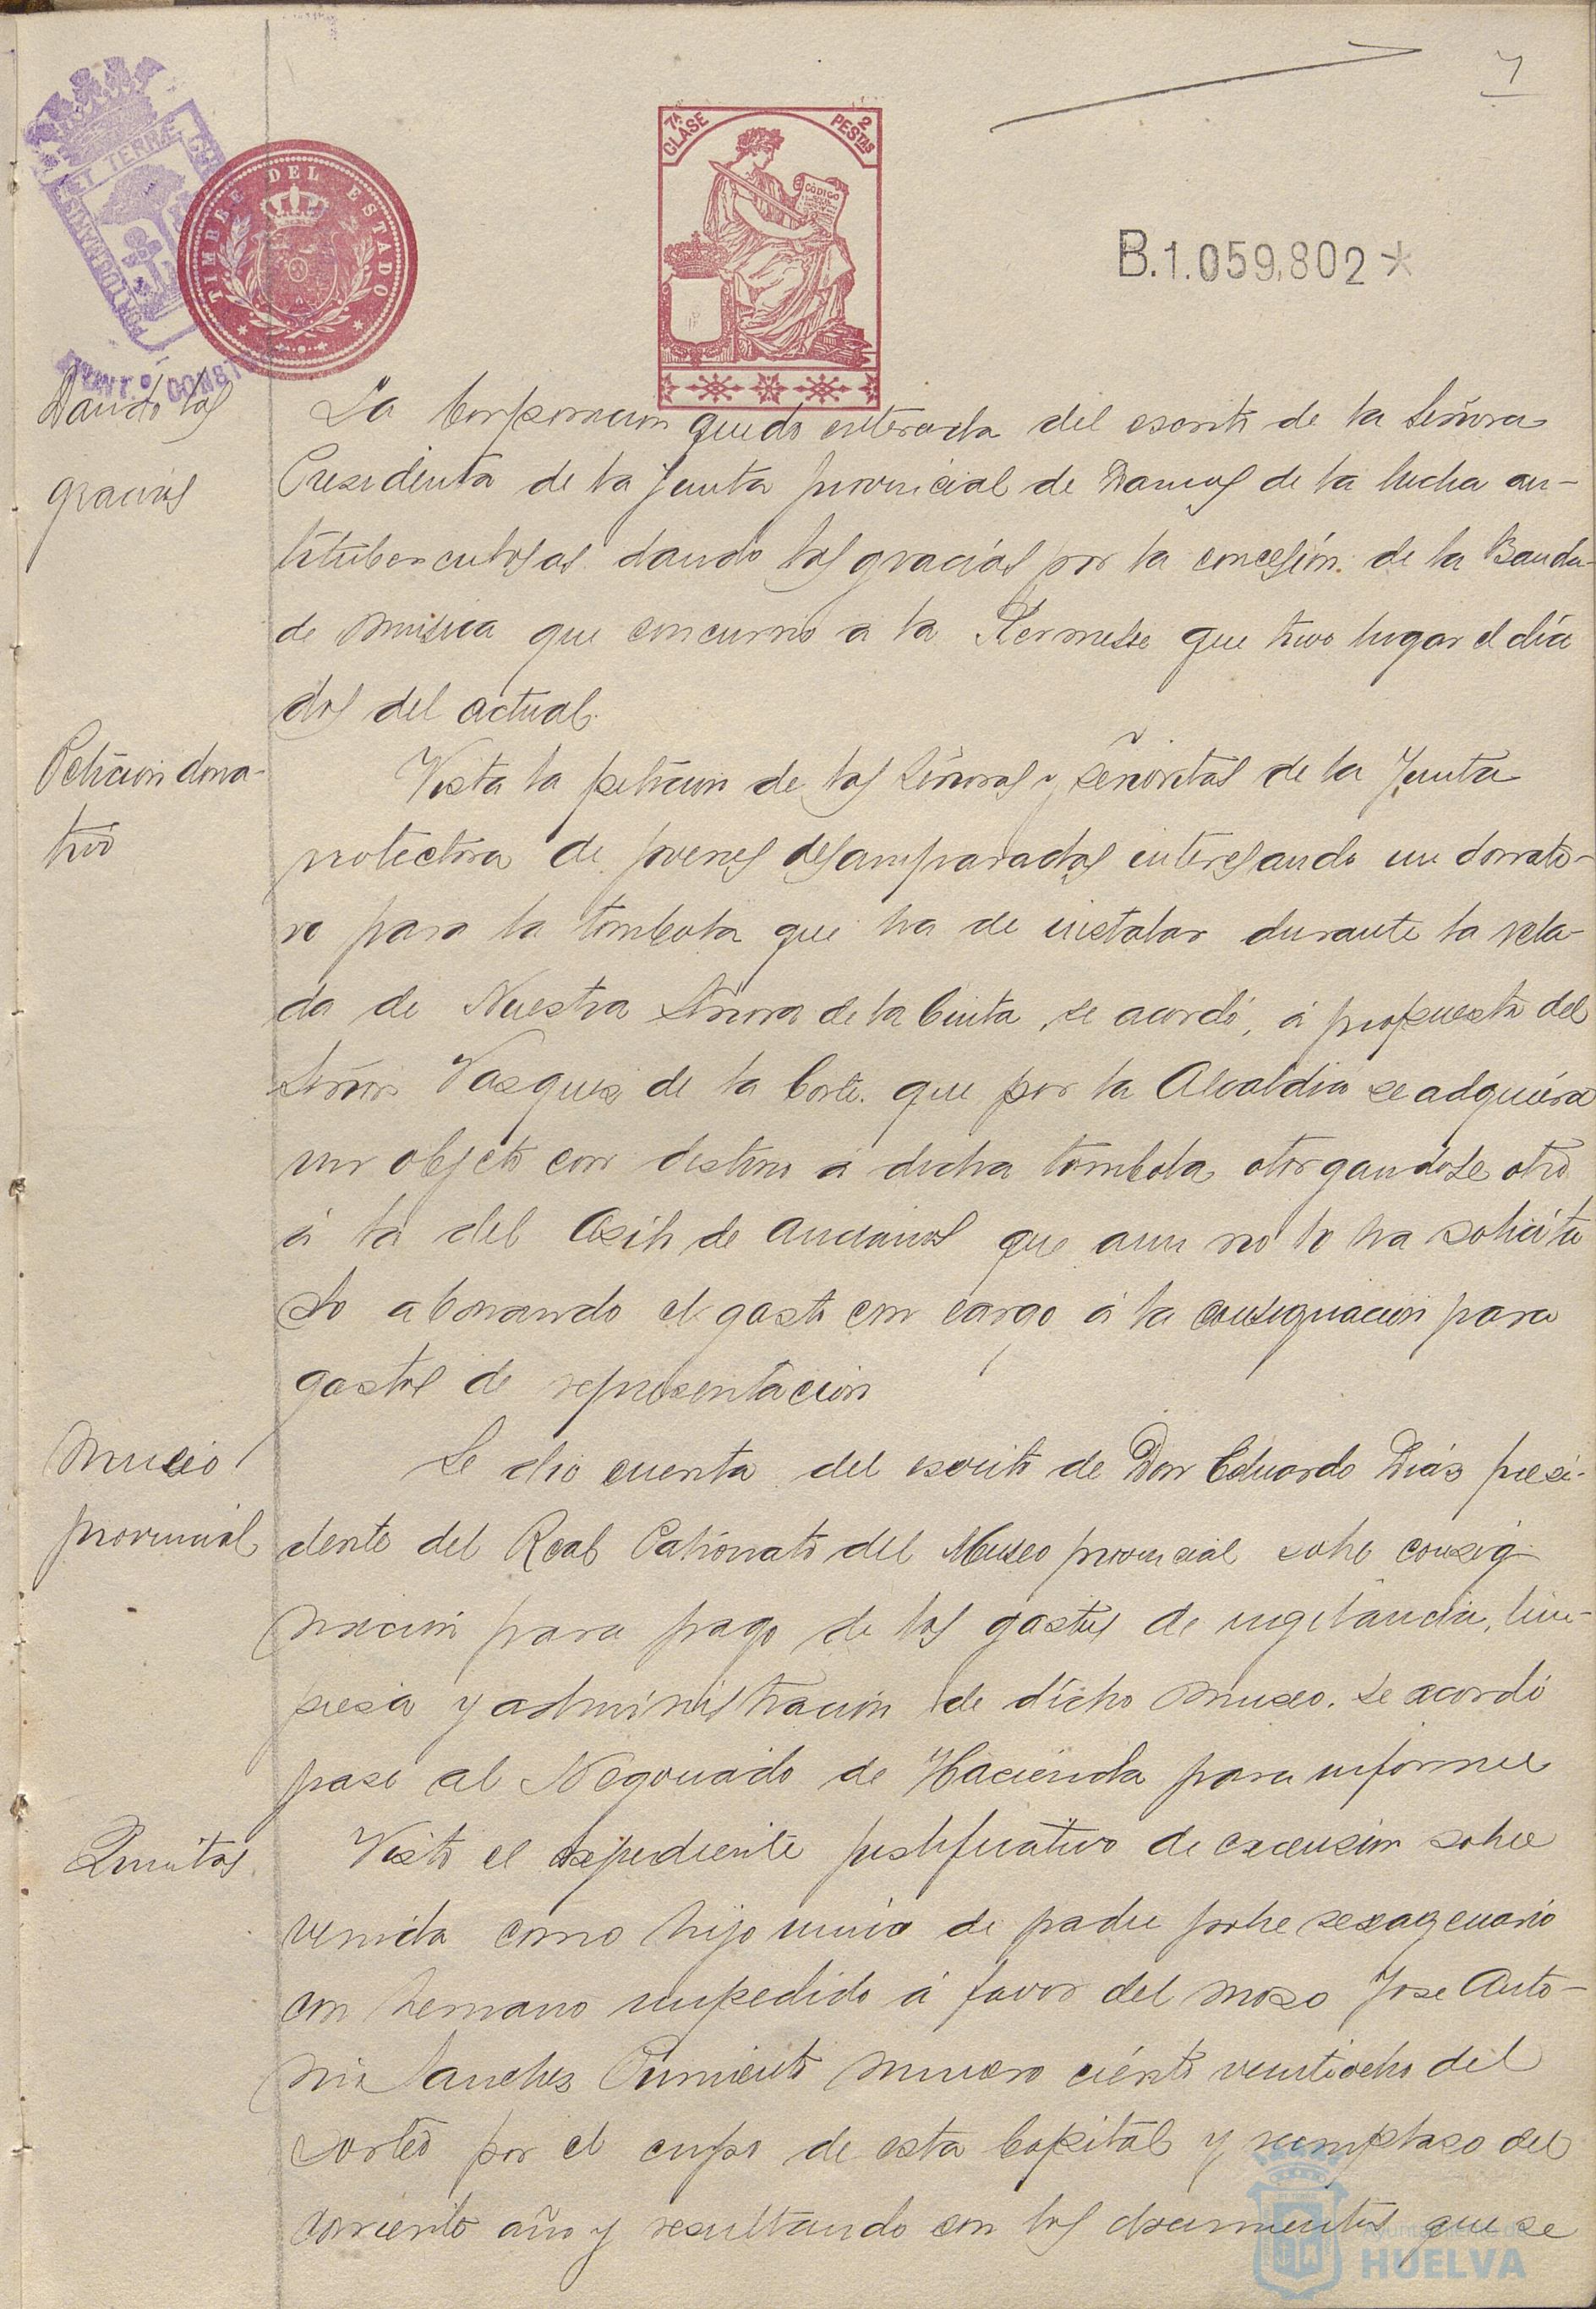 7
7ª CLASE
2 PESTAS
CÓDIGO
TIMBRE DEL ESTADO
B.1.059,802*
Dando las
gracias
La Corporacion quedo enterada del escrito de la Señora
Presidenta de la Junta provincial de Damas de la lucha an-
tituberculosas dando las gracias por la concesión de la Banda
de musica que concurrio a la Kermesse que tuvo lugar el dia
dos del actual.
Peticion dona-
tivo
Vista la peticion de las Señoras y Señoritas de la Junta
protectora de jovenes desamparadas interesando un donati-
vo para la tombola que ha de instalar durante la vela-
da de Nuestra Señora de la Cinta, se acordó, á propuesta del
Señor Vasquez de la Corte. que por la Alcaldia se adquiera
un objeto con destino a dicha tombola otorgandose otro
á la del Asilo de Ancianos que aun no lo ha solicita
do abonando el gasto con cargo á la consignacion para
gastos de representacion
Museo
provincial
Se dio cuenta del escrito de Don Eduardo Dias presi-
dente del Real Patronato del Museo provincial sobre consig-
nacion para pago de los gastos de vigilancia, lim-
piesa y administracion de dicho museo. Se acordó
pase al Negociado de Hacienda para informe
Quintas
Visto el expediente justificativo de excension sobre
venida como hijo unico de padre pobre sexagenario
con hermano impedido á favor del moso Jose Anto-
nio Sanches Pimiento numero ciento veintiocho del
sorteo por el cupo de esta Capital y reemplaso del
corriente año y resultando con los documentos que se
Ayuntamiento de
HUELVA